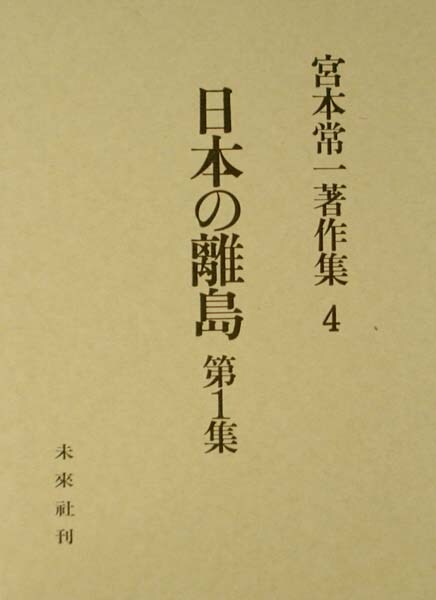 宮本常一著作集 4
日本の離島 第1集
未來社刊